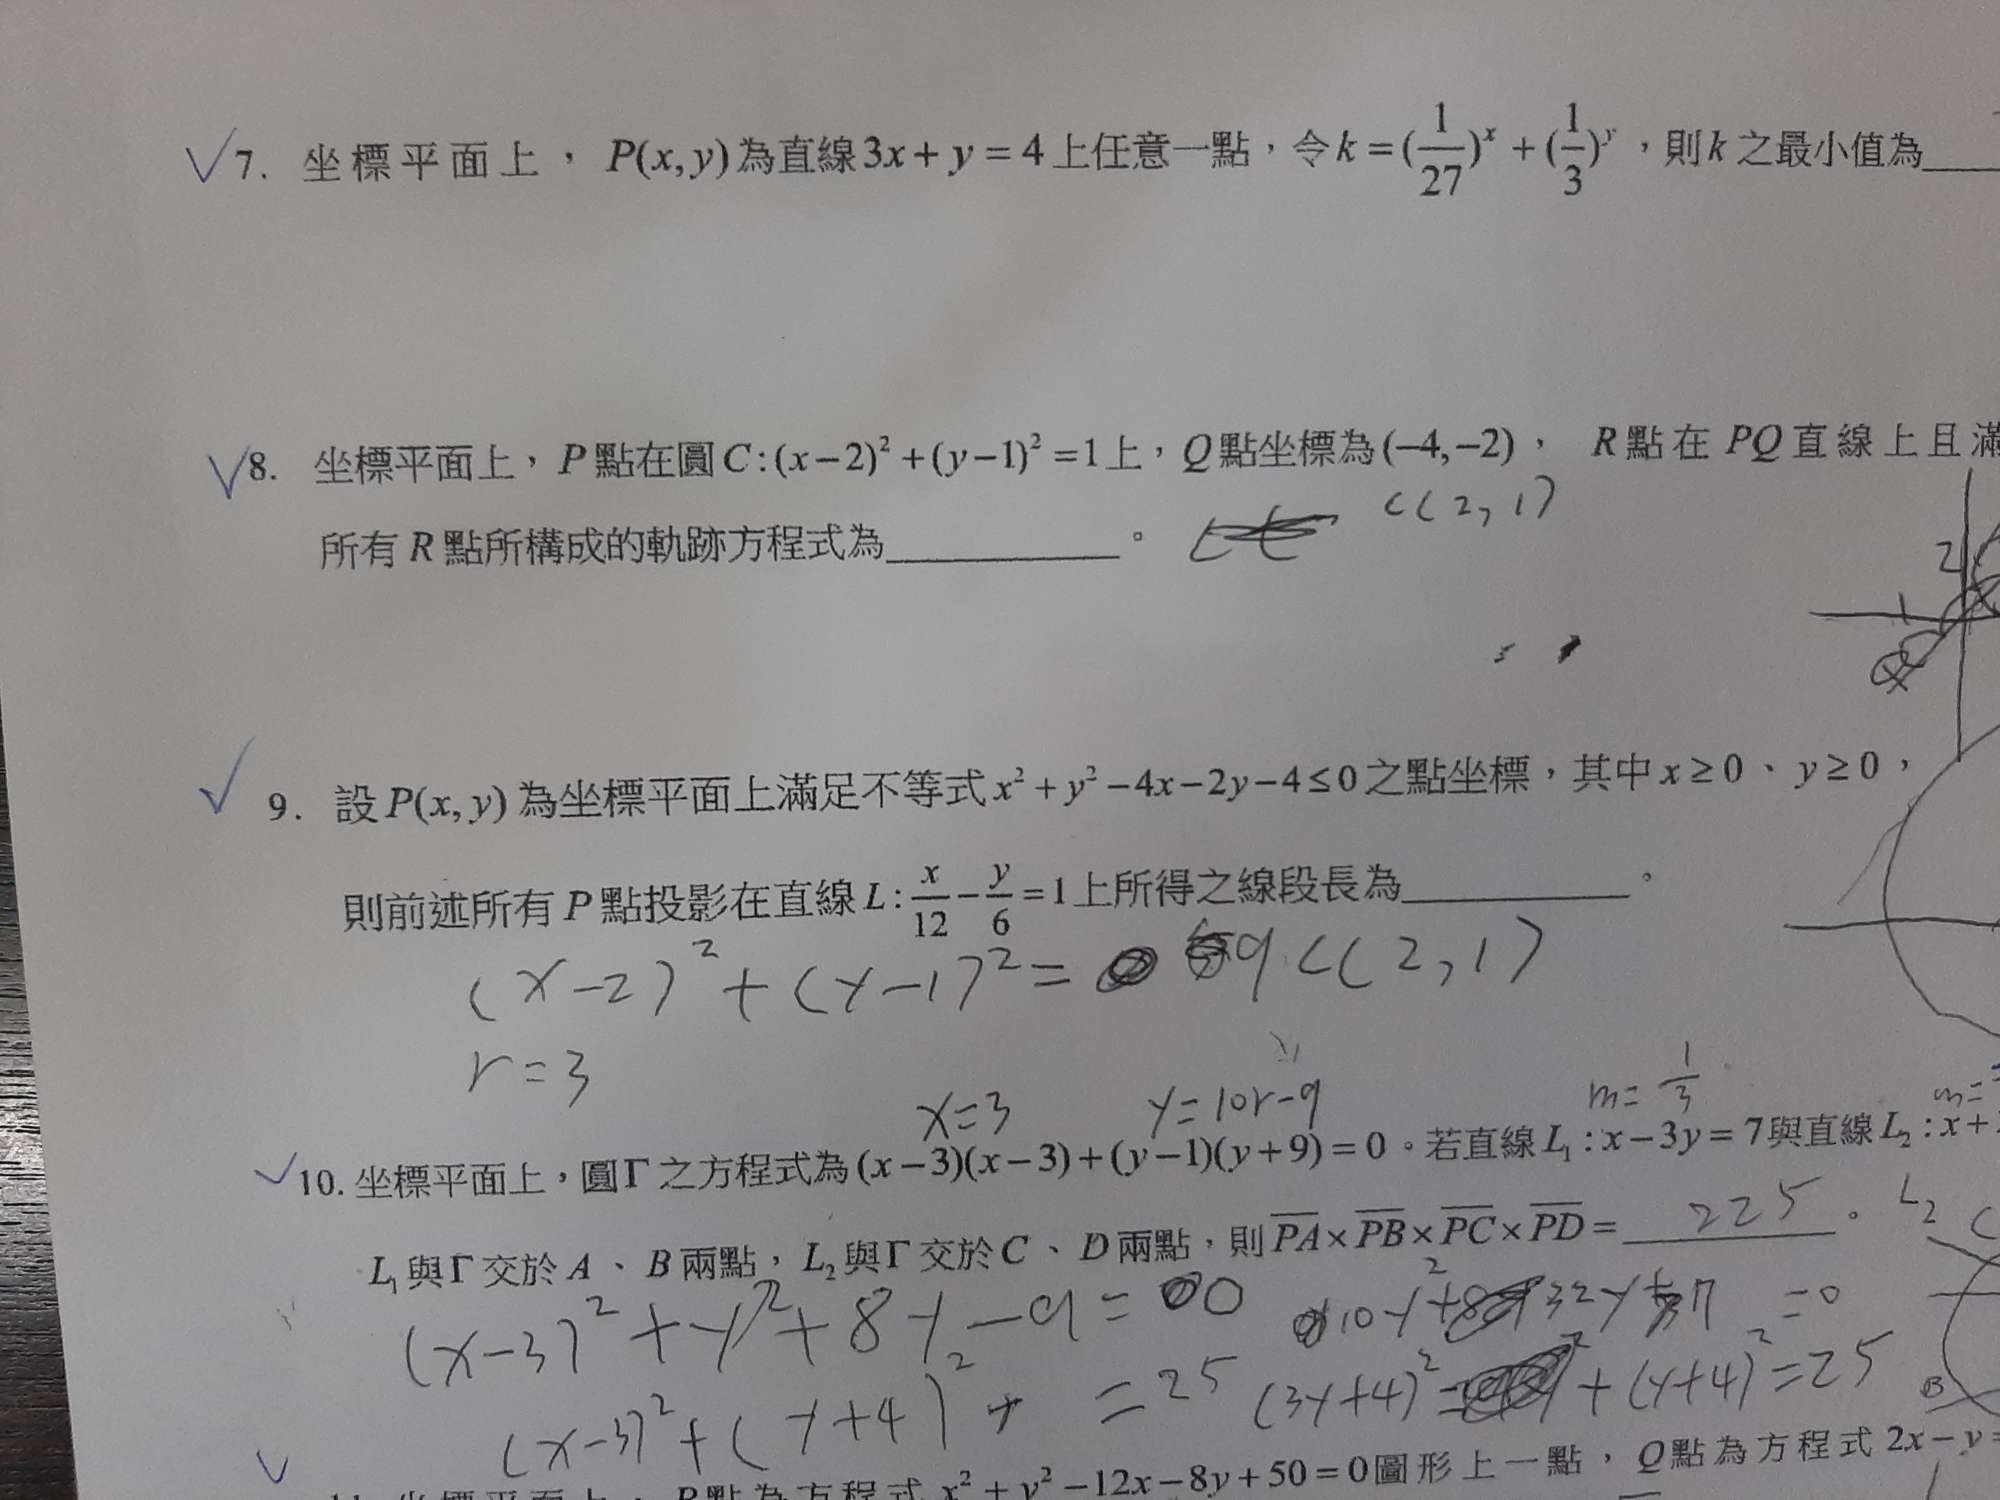 7. 坐標平面上，P(x, y)為直線3x + y = 4上任意一點，令k = (1/27)^x + (1/3)^y，則k之最小值為
8. 坐標平面上，P點在圓C:(x−2)²+(y−1)²=1上，Q點坐標為(−4,−2)， R點在PQ直線上且滿
所有R點所構成的軌跡方程式為________。
C(2,1)
2
9. 設P(x, y)為坐標平面上滿足不等式x²+y²−4x−2y−4≤0之點坐標，其中x≥0、y≥0，
則前述所有P點投影在直線L: x/12 − y/6 = 1上所得之線段長為________。
(x−2)²+(y−1)²= 9 C(2,1)
r=3
x=3 m=1/3 m=
10. 坐標平面上，圓Γ之方程式為(x−3)(x−3)+(y−1)(y+9)=0。若直線L₁:x−3y=7與直線L₂:x+
L₁與Γ交於A、B兩點，L₂與Γ交於C、D兩點，則PA×PB×PC×PD= 225 。 L₂
(x−3)²+y²+8y−9=0 =0
(x−3)²+(y+4)² =25 (3y+4)² +(y+4)²=25
B
P點為方程式x²+y²−12x−8y+50=0圖形上一點，Q點為方程式2x−y=